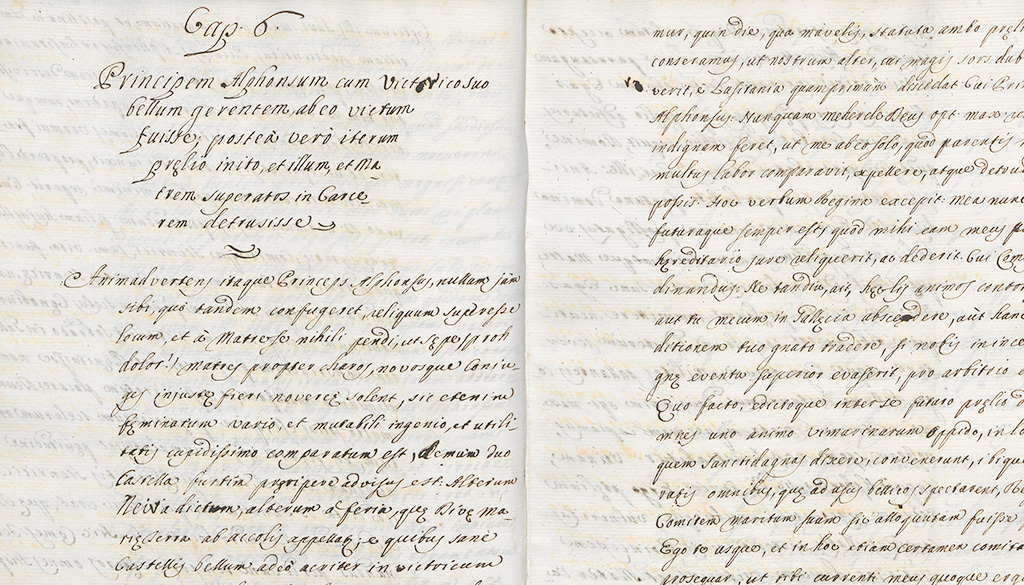 Cap. 6.
Principem Alphonsum cum Victrico suo
bellum gerentem, ab eo victum
fuisse; posteà verò iterum
pręlio inito, et illum, et Ma-
trem superatos in Carce-
rem detrusisse
Animadvertens itaque Princeps Alphonsus, nullum jàm
sibi, quò tandem confugeret, reliquum superesse
locum, et à Matre se nihili pendi, ut sępe, proh
dolor! matres propter charos, novosque Coniu-
ges injustę fieri novercę solent, sic etenim
fęminarum vario, et mutabili ingenio, et utili-
tatis cupidissimo comparatum est, demùm duo
Castella furtìm pręripere advisus est. Alterum
Neiva dictum, alterum a feria, quę Dioę Ma-
rię Serra ab accolis appellatę; e quibus sanè
Castellis bellum adeò acriter in victricum
mur, quin die, qua màvelis, statuta ambo pręli
conseramus, ut nostrum alter, cui magis sors dub
verit, è Lusitania quamprimùm discedat. Cui Pri
Alphonsus: Nunquam mehercle Deus opt. max.
indignam feret, ut me ab eo solo, quod parentis
multus labor comparavit, expellere, atque detrud
possis. Hoc verbum Regina excepit: mea nunc
futuraque semper est, quod mihi eam meus p
hęreditario jure reliquerit, ac dederit. Cui Com
dinandus: Ne tandiu, ait, hęc lis animos contor
aut tu mecum in Gallęcia abscendere, aùt hanc
detionem tuo gnato tradere, si nobis in ince
que eventu superior evaserit, pro arbitrio
Quo facto, edictoque inter se futuro pręlio
mnes uno animo Vimarenarum Oppido, in lo
quem Sanctidagnas dixere, convenerunt, ibique
ratis omnibus, quę ad usus bellicos spectarent, Re
Comitem maritum suum sic alloquutam fuisse
Ego te usque, et in hoc etiam certamen comita
prosequar, ut tibi currenti meus quoque erg